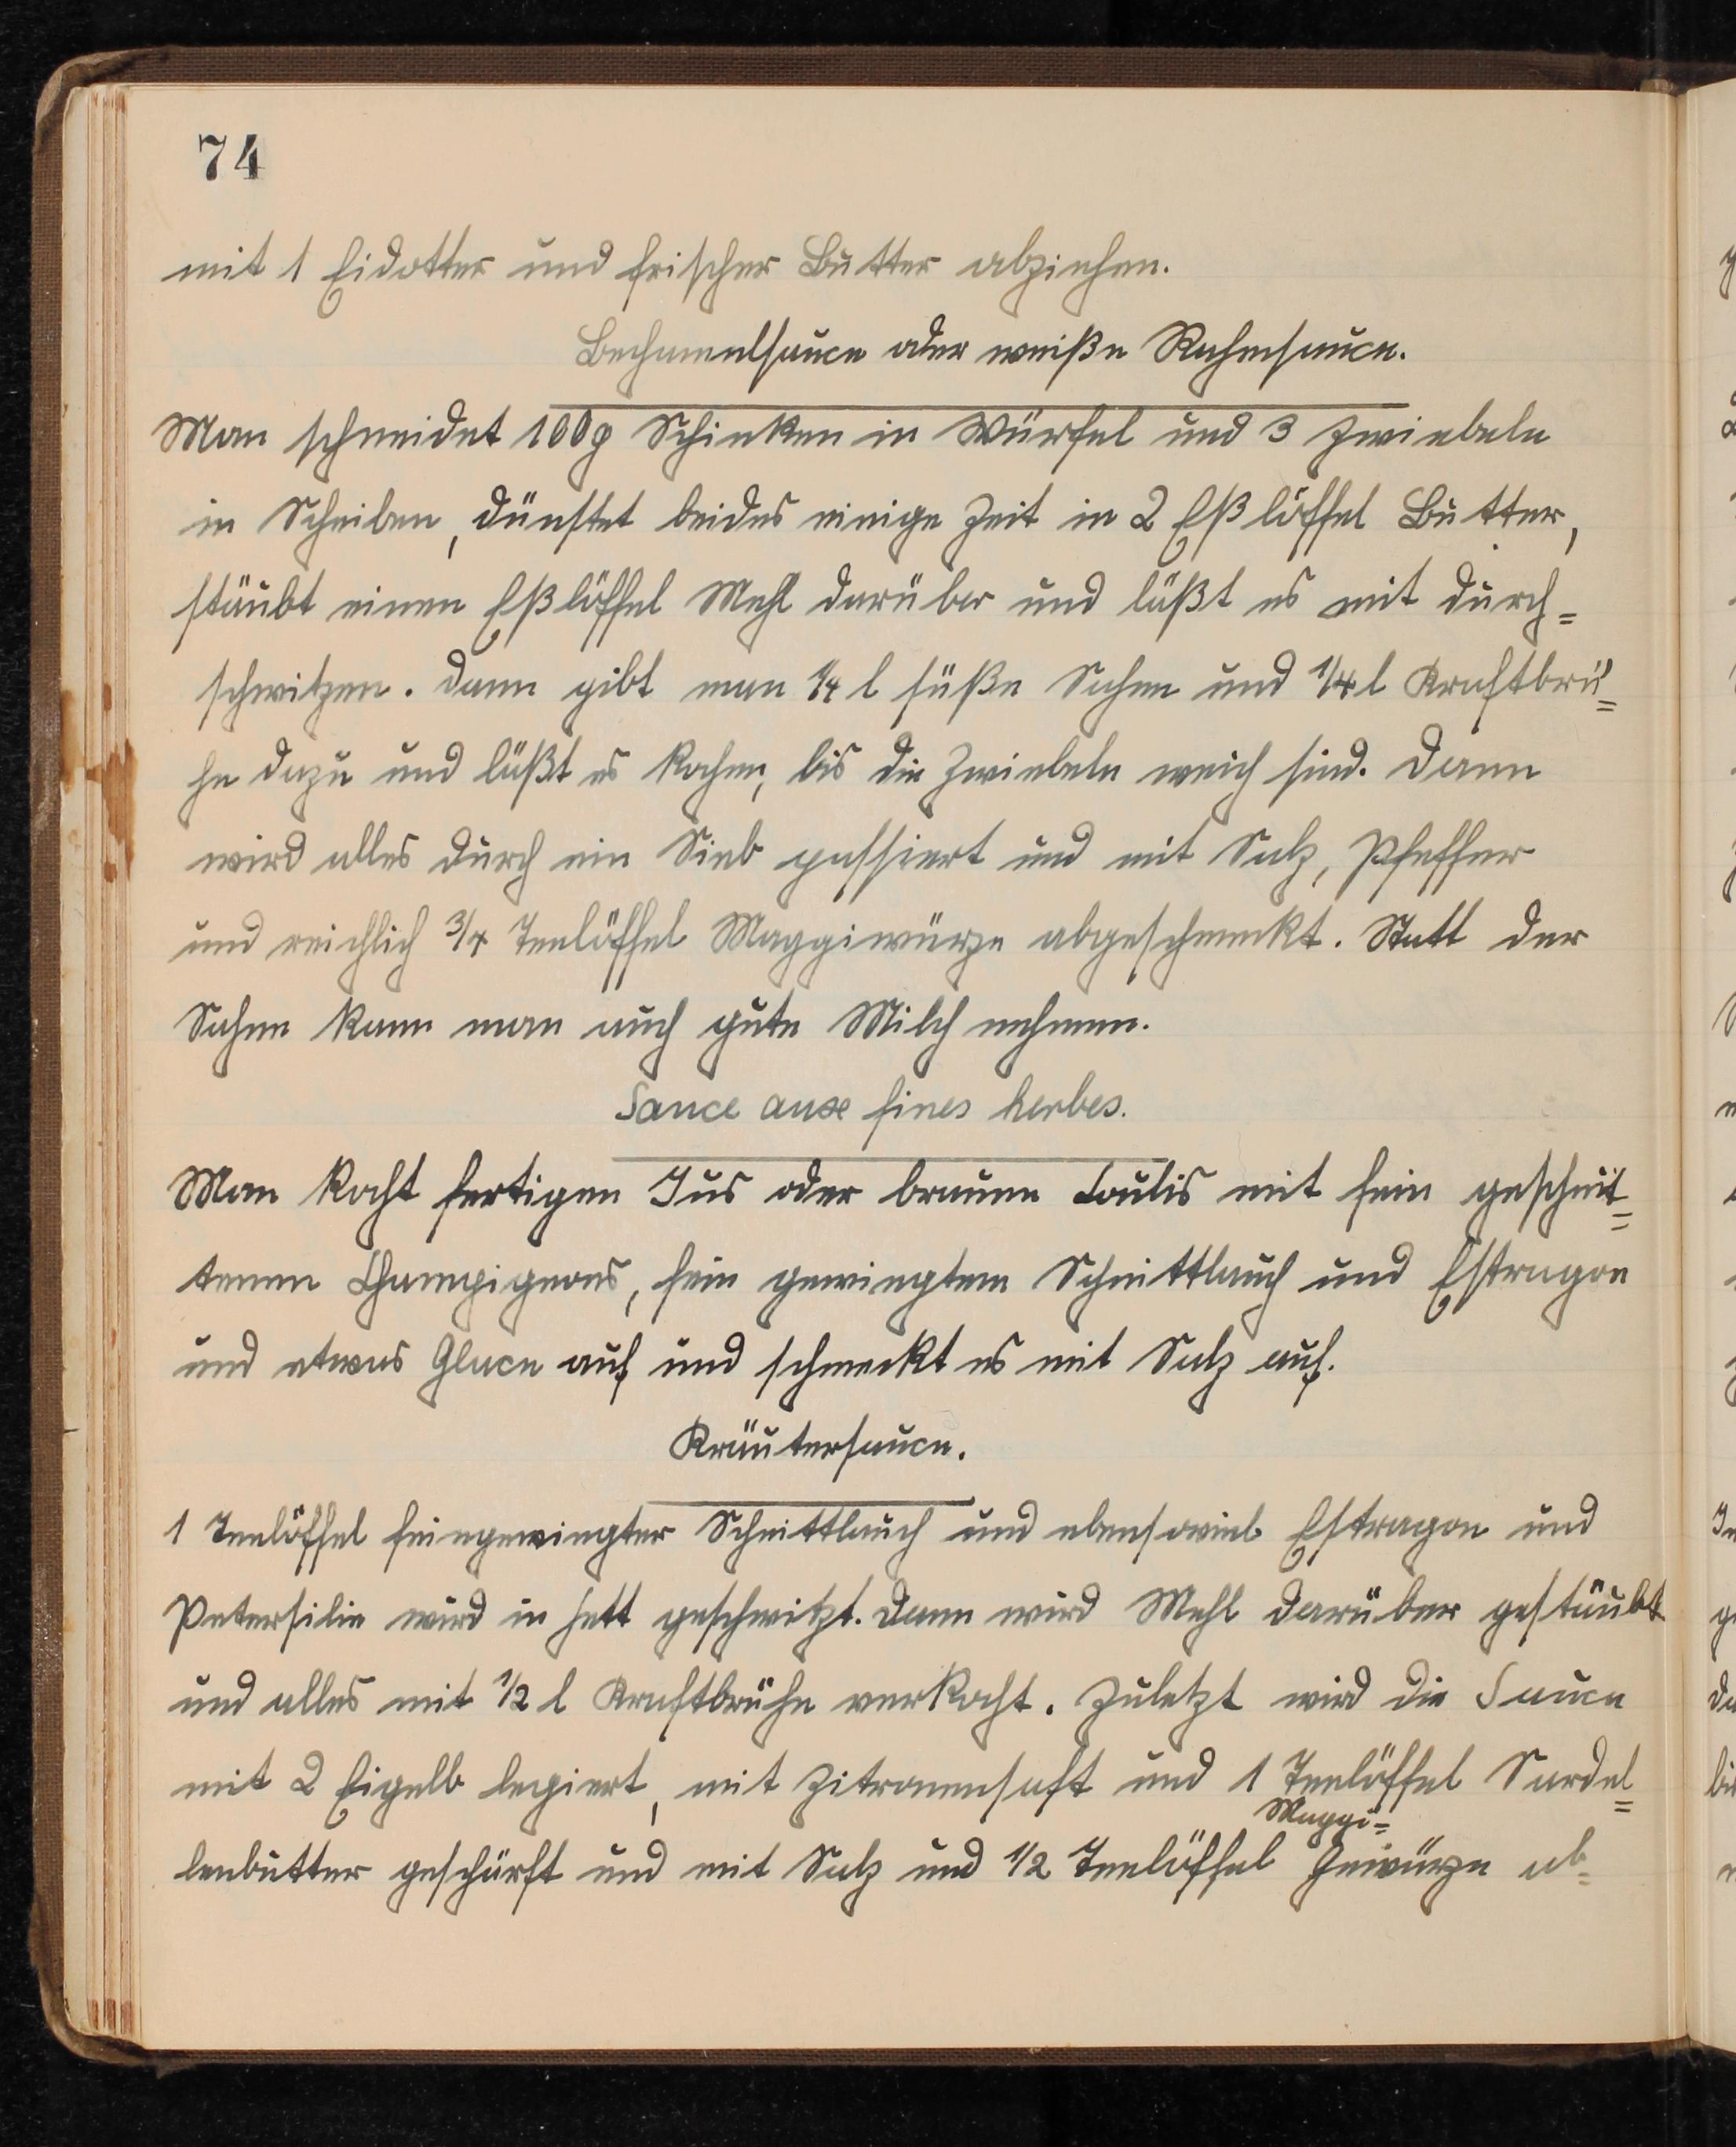 74
mit 1 Eidotter und frischer Butter abziehen.
Bechamelsauce oder weiße Rahmsauce.
Man schneidet 100g Schinken in Würfel und 3 Zwiebeln
in Scheiben, dünstet beides einige Zeit in 2 Eßlöffel Butter,
stäubt einen Eßlöffel Mehl darüber und läßt es mit durch=
schwitzen. Dann gibt man 1/4 l süße Sahne und 1/4 l Kraftbrü=
he dazu und läßt es kochen, bis die Zwiebeln weich sind. Dann
wird alles durch ein Sieb passiert und mit Salz, Pfeffer
und reichlich 3/4 Teelöffel Maggiwürze abgeschmeckt. Statt der
Sahne kann man auch gute Milch nehmen.
Sauce aux fines herbes.
Man kocht fertigen Jus oder braune Coulis mit fein geschnit=
tenen Champignons, fein gewiegtem Schnittlauch und Estragon
und etwas Glace auf und schmeckt es mit Salz auf.
Kräutersauce.
1 Teelöffel feingewiegter Schnittlauch und ebensoviel Estragon und
Petersilie wird in Fett geschwitzt. Dann wird Mehl darüber gestäubt
und alles mit 1/2 l Kraftbrühe verkocht. Zuletzt wird die Sauce
mit 2 Eigelb legiert, mit Zitronensaft und 1 Teelöffel Sardel=
Maggi=
lenbutter geschärft und mit Salz und 1/2 Teelöffel Gewürze ab=